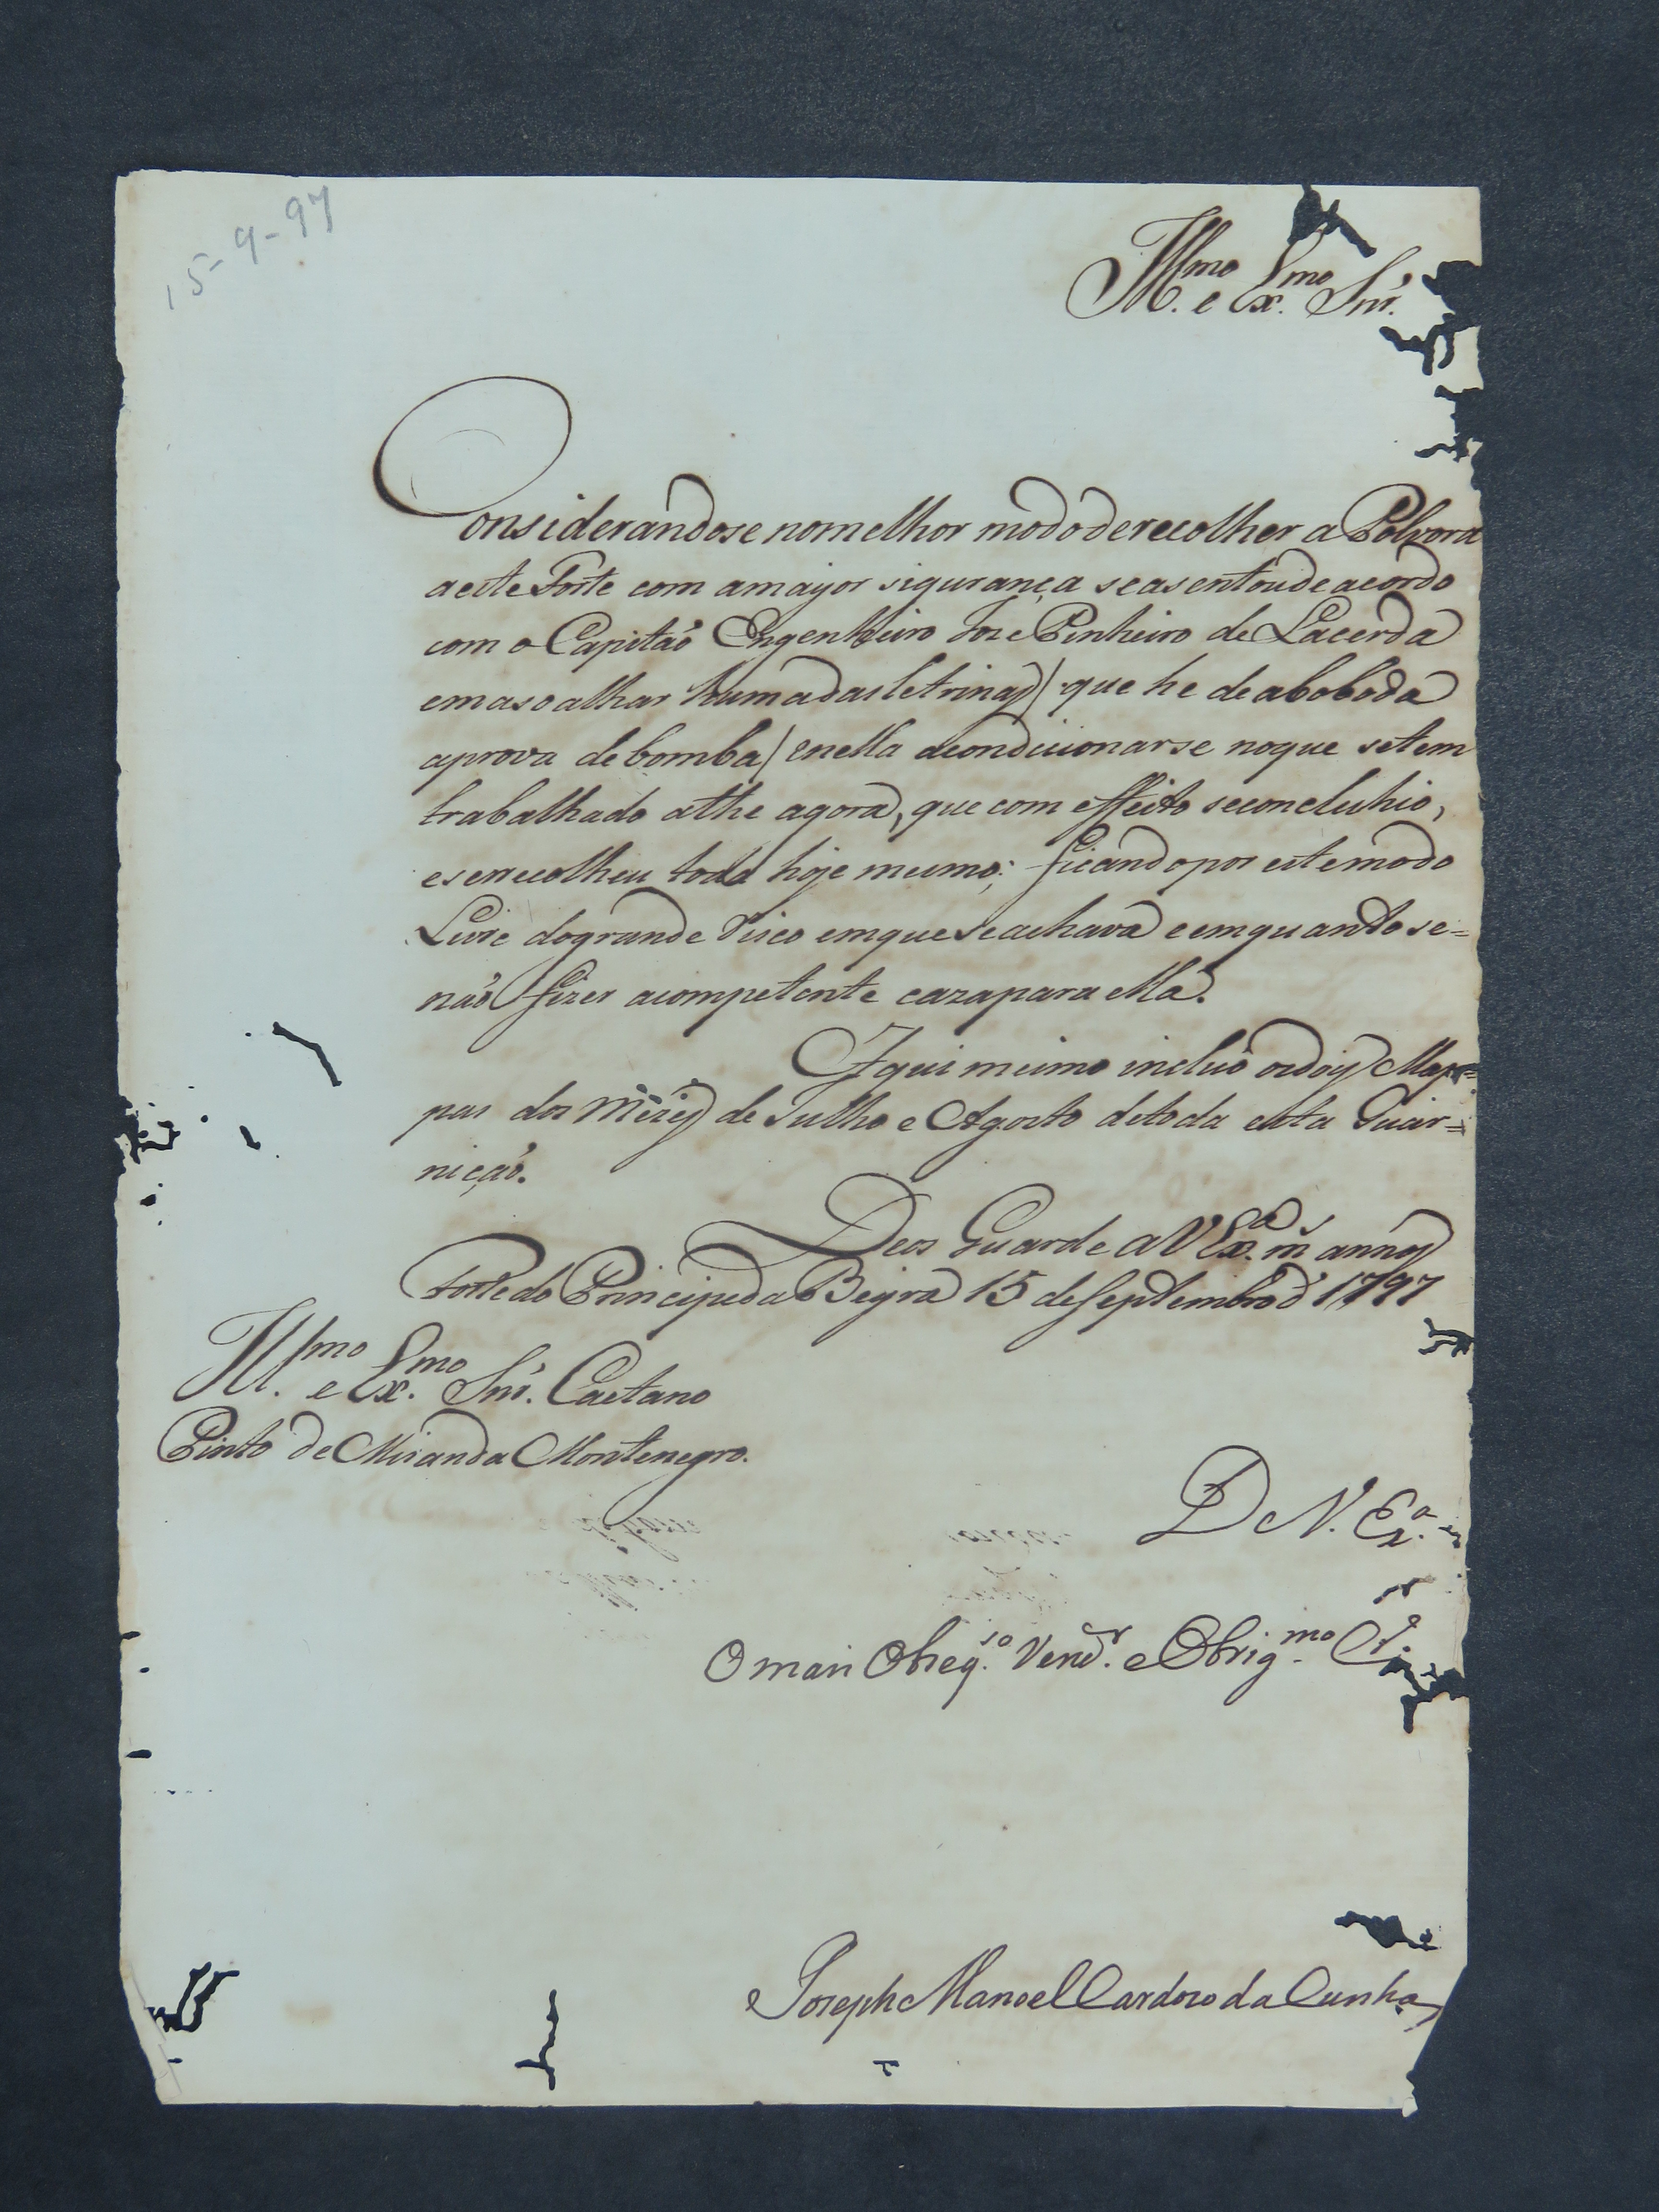 15-9-97
Ill.mo e Ex.mo Snr.
Considerandose nomelhor modo derecolher a Polvora
aeste Forte com amayor sigurança seasentoude acordo
com o Capitaõ Engenheiro Joze Pinheiro de Lacerda
emasoalhar huma das letrinas / que he de aboboda
aprova de bomba / enella acondicionarse noque setem
trabalhado athe agora, que com effeito seconcluhio,
eserecolheu toda hoje mesmo; ficando por estemodo
Livre dogrande risco emque se achava e emquanto se=
naõ fizer acompetente cazapara ella.
Aqui mesmo incluo os doiz Map=
pas dos mezes de Julho e Agosto detoda esta Guar=
niçaõ.
Deos Guarde a V Ex.a m.s annos
Forte do Principe da Beyra 15 de Septembro d' 1797
Ill.mo e Ex.mo Snr. Caetano
Pinto de Miranda Montenegro.
De V. Ex.a
O mais Obseq.so Vend.r e Obrig.mo
Joseph Manoel Cardozo da Cunha